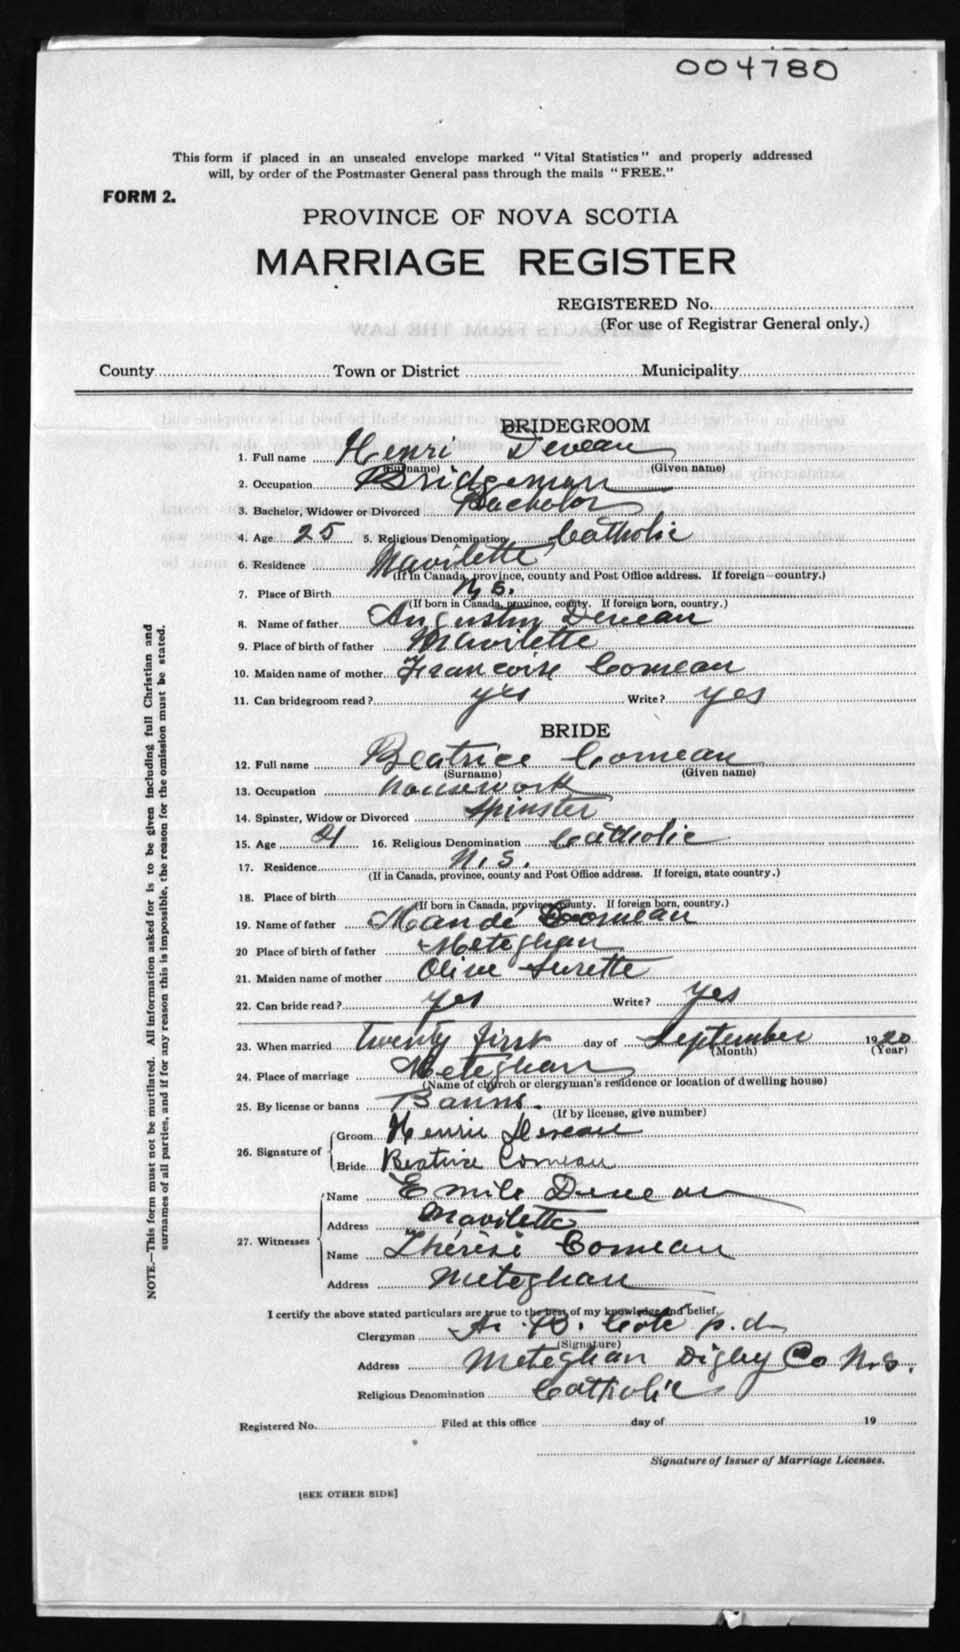 004780
This form if placed in an unsealed envelope marked "Vital Statistics" and properly addressed
will, by order of the Postmaster General pass through the mails "FREE."
FORM 2.
PROVINCE OF NOVA SCOTIA
MARRIAGE REGISTER
REGISTERED No.
(For use of Registrar General only.)
County Town or District Municipality
BRIDEGROOM
1. Full name Henri Deveau
(Surname) (Given name)
2. Occupation Bridgeman
3. Bachelor, Widower or Divorced Bachelor
4. Age 25 5. Religious Denomination Catholic
6. Residence Mavilette
(If in Canada, province, county and Post Office address. If foreign—country.)
7. Place of Birth N.S.
(If born in Canada, province, county. If foreign born, country.)
8. Name of father Augustin Deveau
9. Place of birth of father Mavilette
10. Maiden name of mother Francoise Comeau
11. Can bridegroom read? yes Write? yes
BRIDE
12. Full name Beatrice Comeau
(Surname) (Given name)
13. Occupation housework
14. Spinster, Widow or Divorced Spinster
15. Age 21 16. Religious Denomination Catholic
17. Residence N.S.
(If in Canada, province, county and Post Office address. If foreign, state country.)
18. Place of birth
(If born in Canada, province, county. If foreign born, country.)
19. Name of father Mandé Comeau
20 Place of birth of father Meteghan
21. Maiden name of mother Olive Surette
22. Can bride read? yes Write? yes
23. When married twenty first day of September 1920
(Month) (Year)
24. Place of marriage Meteghan
(Name of church or clergyman's residence or location of dwelling house)
25. By license or banns Banns.
(If by license, give number)
26. Signature of Groom Henri Deveau
Bride Beatrice Comeau
27. Witnesses Name Emile Deveau
Address Mavilette
Name Thérèse Comeau
Address Meteghan
I certify the above stated particulars are true to the best of my knowledge and belief.
Clergyman B. Cote p.d.
(Signature)
Address Meteghan Digby Co N.S.
Religious Denomination Catholic
Registered No. Filed at this office day of 19
Signature of Issuer of Marriage Licenses.
[SEE OTHER SIDE]
NOTE.—This form must not be mutilated. All information asked for is to be given including full Christian and
surnames of all parties, and if for any reason this is impossible, the reason for the omission must be stated.